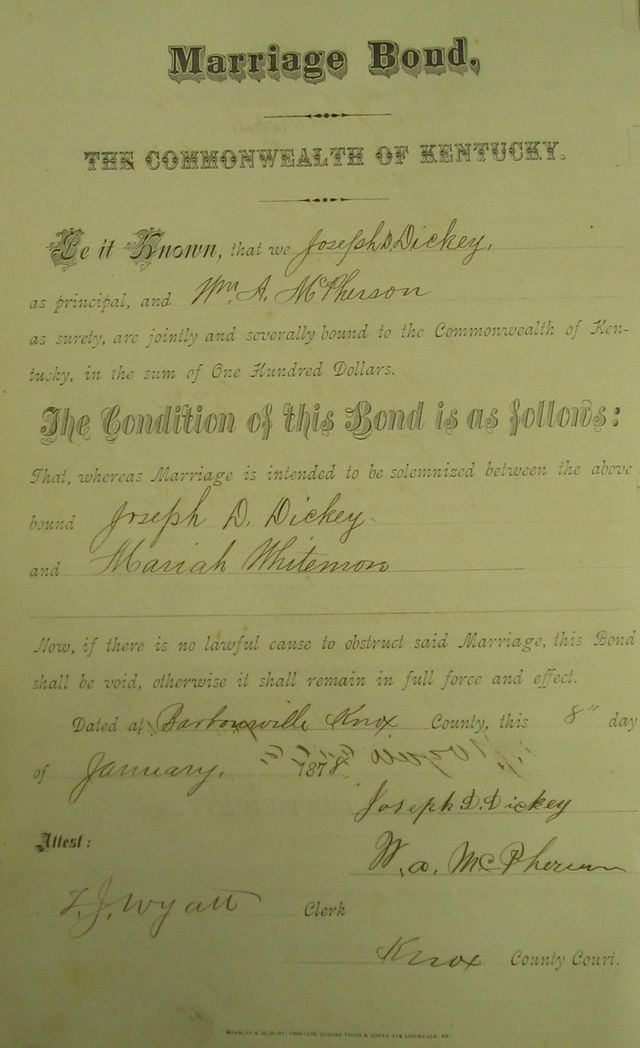 Marriage Bond,
THE COMMONWEALTH OF KENTUCKY.
Be it Known, that we Joseph D. Dickey,
as principal, and Wm. A. McPherson
as surety, are jointly and severally bound to the Commonwealth of Ken-
tucky, in the sum of One Hundred Dollars.
The Condition of this Bond is as follows:
That, whereas Marriage is intended to be solemnized between the above
bound Joseph D. Dickey.
and Mariah Whitemon
Now, if there is no lawful cause to obstruct said Marriage, this Bond
shall be void, otherwise it shall remain in full force and effect.
Dated at Knox County, this 8" day
of January, 1878.
Joseph D. Dickey
Attest:
W. a. McPherson
Z. J. Wyatt Clerk
Knox County Court.